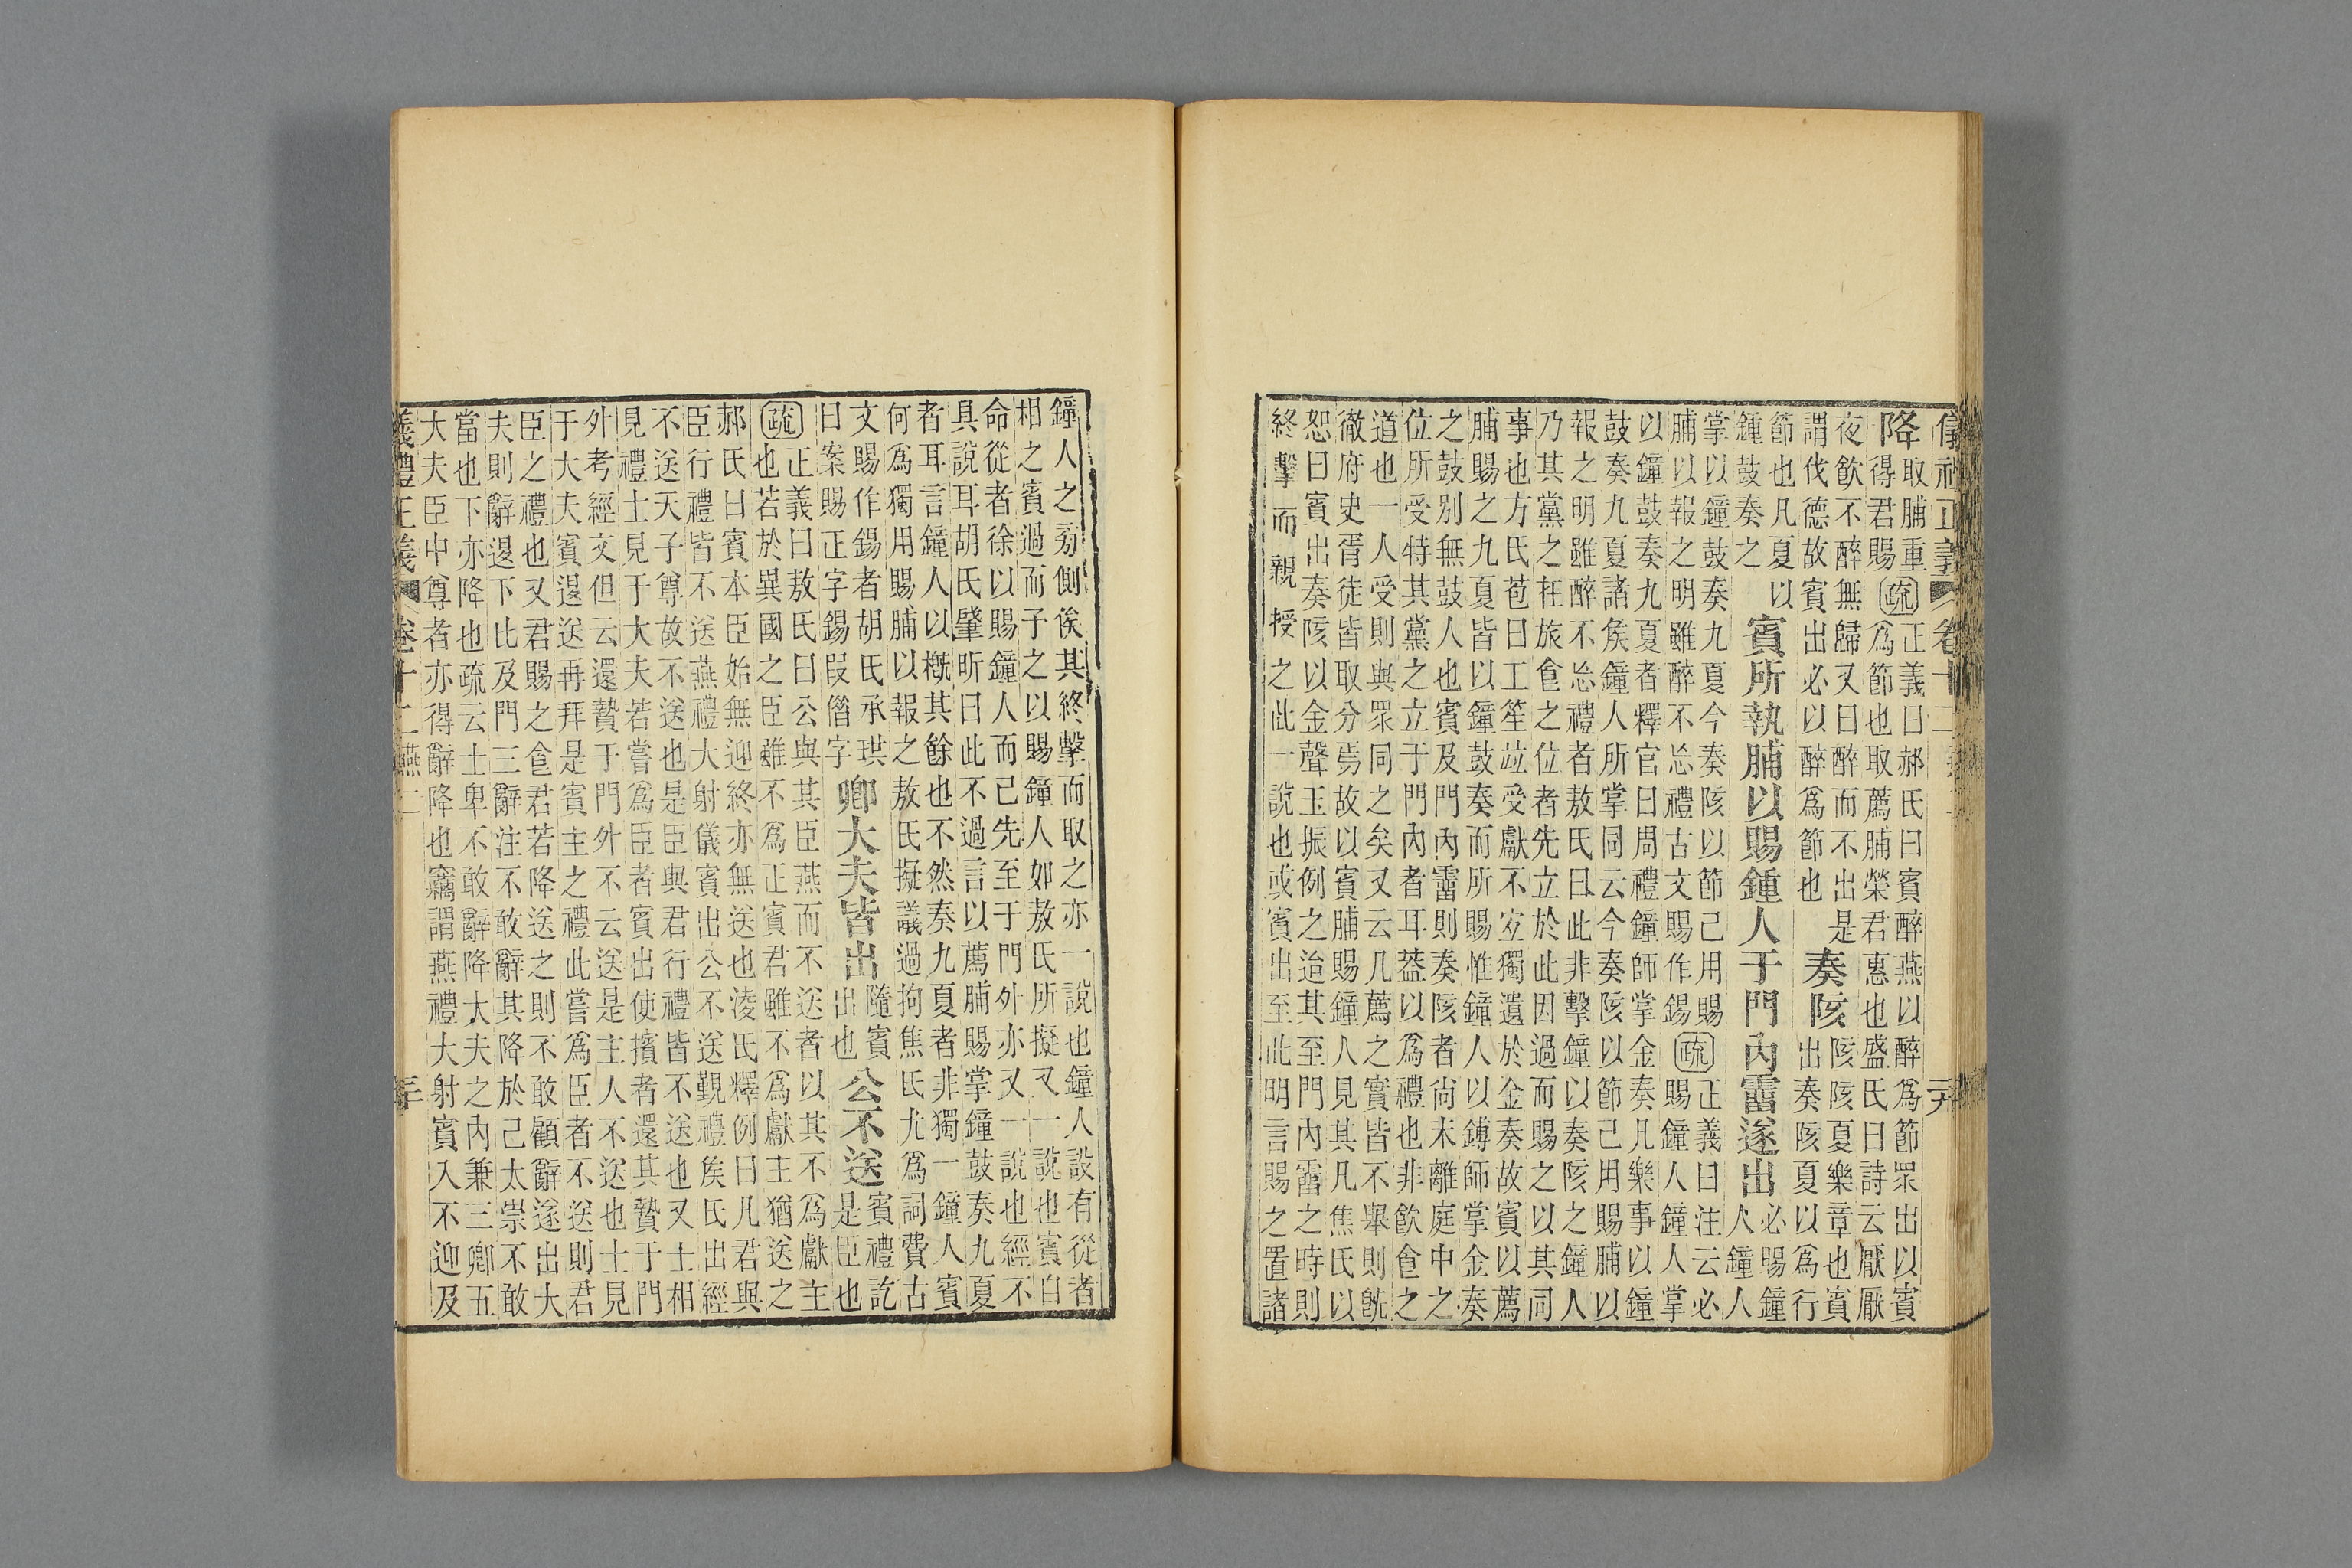 降取脯重得君賜疏正義曰郝氏曰賓醉燕以醉爲節眾出以賓
爲節也取薦脯榮君惠也盛氏曰詩云厭厭
夜飮不醉無歸又曰醉而不出是
謂伐德故賓出必以醉爲節也
奏陔陔陔夏樂章也賓
出奏陔夏以爲行
節也凡夏以
鍾鼓奏之
賓所執脯以賜鍾人于門內霤遂出必賜鍾
人鐘人
掌以鐘鼓奏九夏今奏陔以節己用賜
脯以報之明雖醉不忘禮古文賜作錫
疏正義曰注云必
賜鐘人鐘人掌
以鐘鼓奏九夏者釋官曰周禮鐘師掌金奏凡樂事以鐘
鼓奏九夏諸矦鐘人所掌同云今奏陔以節己用賜脯以
報之明雖醉不忘禮者敖氏曰此非擊鐘以奏陔之鐘人
乃其黨之在旅食之位者先立於此因過而賜之以其同
事也方氏苞曰工笙竝受獻不宜獨遺於金奏故賓以薦
脯賜之九夏皆以鐘鼓奏而所賜惟鐘人以鎛師掌金奏
之鼓別無鼓人也賓及門內霤則奏陔者尙未離庭中之
位所受特其黨之立于門內者耳葢以爲禮也非飮食之
道也一人受則與眾同之矣又云凡薦之實皆不舉則旣
徹府史胥徒皆取分焉故以賓脯賜鐘人見其凡焦氏以
恕曰賓出奏陔以金聲玉振例之迨其至門內霤之時則
終擊而親授之此一說也或賓出至此明言賜之置諸
鐘人之旁側俟其終擊而取之亦一說也鐘人設有從者
相之賓過而子之以賜鐘人如敖氏所擬又一說也賓自
命從者徐以賜鐘人而己先至于門外亦又一說也經不
具說耳胡氏肇昕曰此不過言以薦脯賜掌鐘鼓奏九夏
者耳言鐘人以槪其餘也不然奏九夏者非獨一鐘人賓
何爲獨用賜脯以報之敖氏擬議過拘焦氏尤爲詞費古
文賜作錫者胡氏承珙
曰案賜正字錫叚僭字
卿大夫皆出隨賓
出也
公不送賓禮訖
是臣也
疏正義曰敖氏曰公與其臣燕而不送者以其不爲獻主
也若於異國之臣雖不爲正賓君雖不爲獻主猶送之
郝氏曰賓本臣始無迎終亦無送也淩氏釋例曰凡君與
臣行禮皆不送燕禮大射儀賓出公不送覲禮矦氏出經
不送天子尊故不送也是臣與君行禮皆不送也又士相
見禮士見于大夫若嘗爲臣者賓出使擯者還其贄于門
外考經文但云還贄于門外不云送是主人不送也士見
于大夫賓退送再拜是賓主之禮此嘗爲臣者不送則君
臣之禮也又君賜之食君若降送之則不敢顧辭遂出大
夫則辭退下比及門三辭注不敢辭其降於己太崇不敢
當也下亦降也疏云士卑不敢辭降大夫之內兼三卿五
大夫臣中尊者亦得辭降也竊謂燕禮大射賓入不迎及